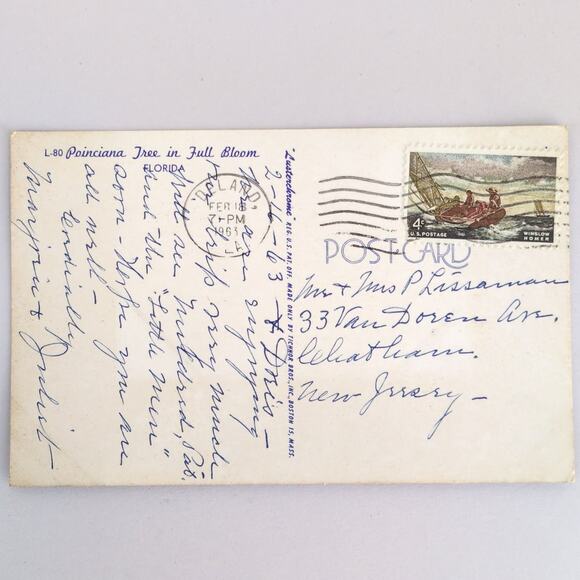 L-80 Poinciana Tree in Full Bloom
FLORIDA
2-16-63
& Doris-
We are enjoying
trip very much
Will see Mildred, Pat.
and the "Little Men"
soon - Hope you are
all well -
Cordially
Marjorie &
"Lusterchrome" REG. U.S. PAT. OFF. MADE ONLY BY TICHNOR BROS., INC., BOSTON 15, MASS.
DELAND,
FEB 18
7-PM
1963
4¢
U.S. POSTAGE
WINSLOW
HOMER
POST CARD
Mr + Mrs P Lissaman
33 Van Doren Ave.
Chatham.
New Jersey -